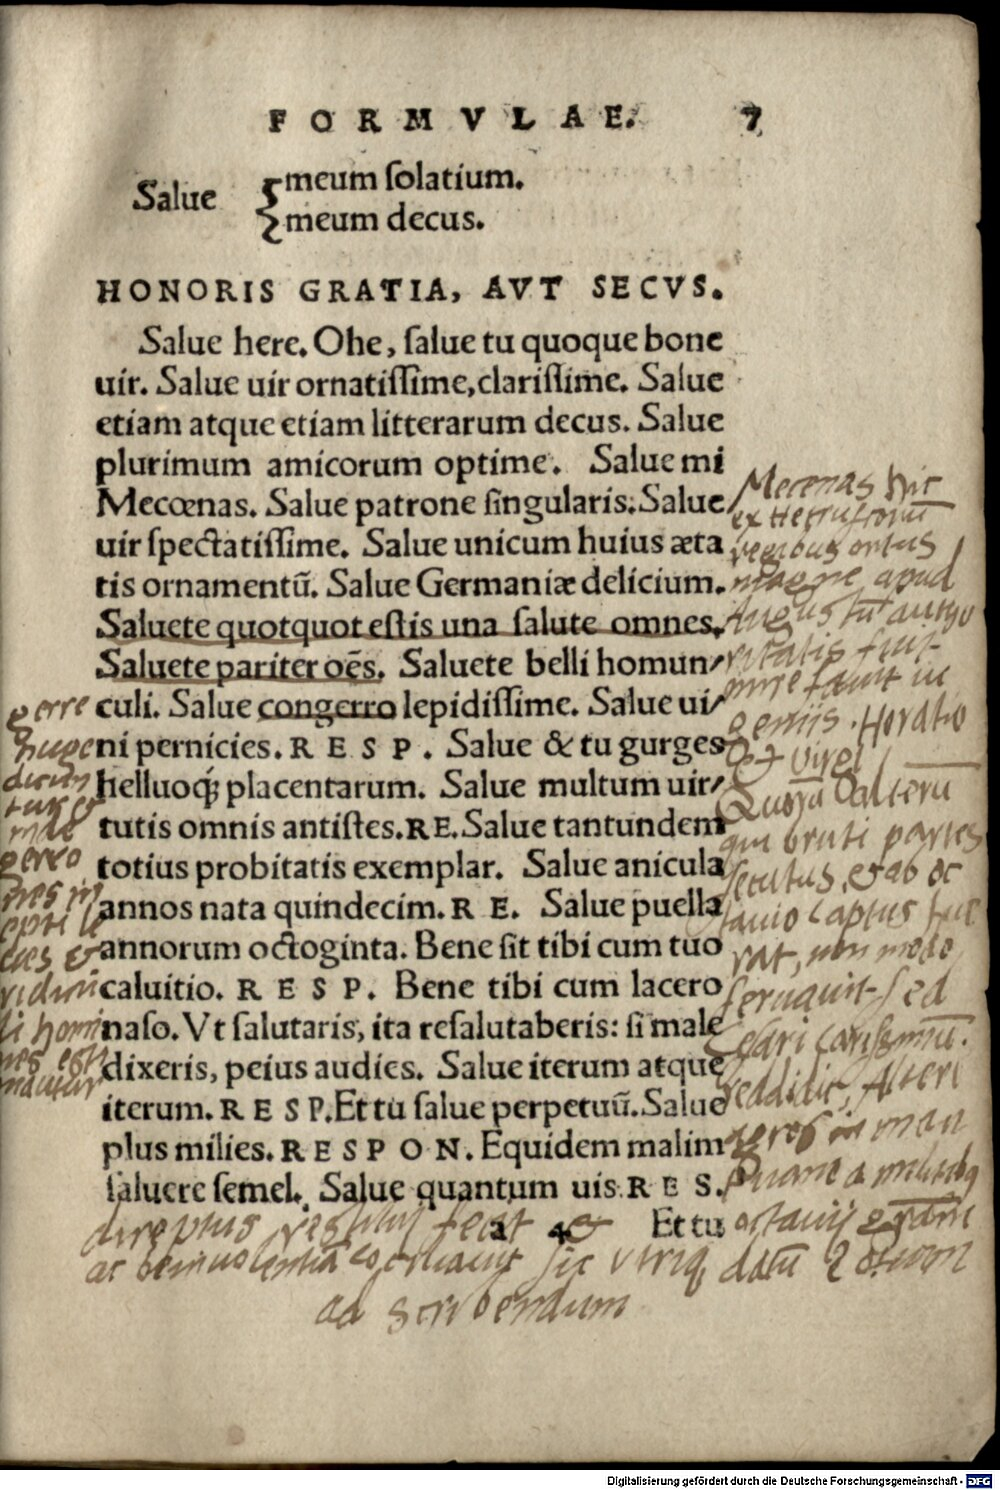 FORMVLAE. 7
Salue { meum ſolatium.
meum decus.
HONORIS GRATIA, AVT SECVS.
Salue here. Ohe, ſalue tu quoque bone
uir. Salue uir ornatiſſime, clariſſime. Salue
etiam atque etiam litterarum decus. Salue
plurimum amicorum optime. Salue mi
Mecœnas. Salue patrone ſingularis. Salue
uir ſpectatiſſime. Salue unicum huius æta
tis ornamentū. Salue Germaniæ delicium.
Saluete quotquot eſtis una ſalute omnes.
Saluete pariter oēs. Saluete belli homun⸗
culi. Salue congerro lepidiſſime. Salue ui⸗
ni pernicies. RESP. Salue & tu gurges
helluoq; placentarum. Salue multum uir⸗
tutis omnis antiſtes. RE. Salue tantundem
totius probitatis exemplar. Salue anicula
annos nata quindecim. RE. Salue puella
annorum octoginta. Bene ſit tibi cum tuo
caluitio. RESP. Bene tibi cum lacero
naſo. Vt ſalutaris, ita reſalutaberis: ſi male
dixeris, peius audies. Salue iterum atque
iterum. RESP. Et tu ſalue perpetuū. Salue
plus milies. RESPON. Equidem malim
ſaluere ſemel. Salue quantum uis. RES.
a 4 Et tu
Mecenas hic
ex Hetruscorū
regibus ortus
magne apud
Augustū autho
ritatis fuit
mire fauit in
geniis. Horatio
et Virgi
Quorū alterū
qui bruti partes
secutus, & ab oc
tauio captus fue
rat, non modo
seruauit sed
Cesari carissimū
reddidit, Alteri
agros in man
tuane a militibꝫ
octauij
direptus restitui fecit &
ac beniuolentiā cōciliauit sic utriq; datū otium
ad scribendum
gerre
nuge
dicun
tur
inde
gerro
nes in
epti le
ues &
ridicu
li homi
nes